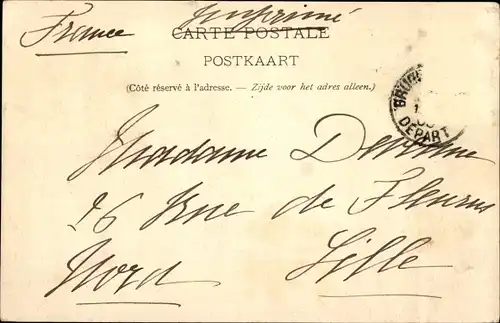 Imprimé
France
CARTE POSTALE
POSTKAART
(Côté réservé à l'adresse. — Zijde voor het adres alleen.)
DEPART
Madame
26 Rue de Fleurus
Nord Lille